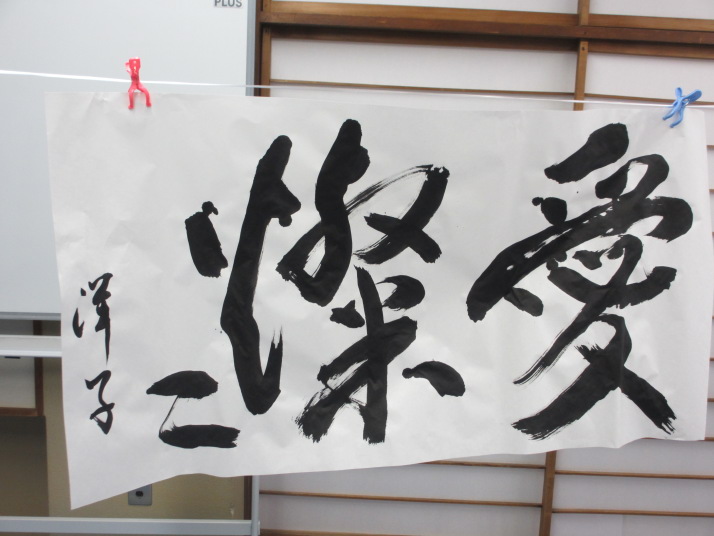 PLUS
愛燦々
洋子